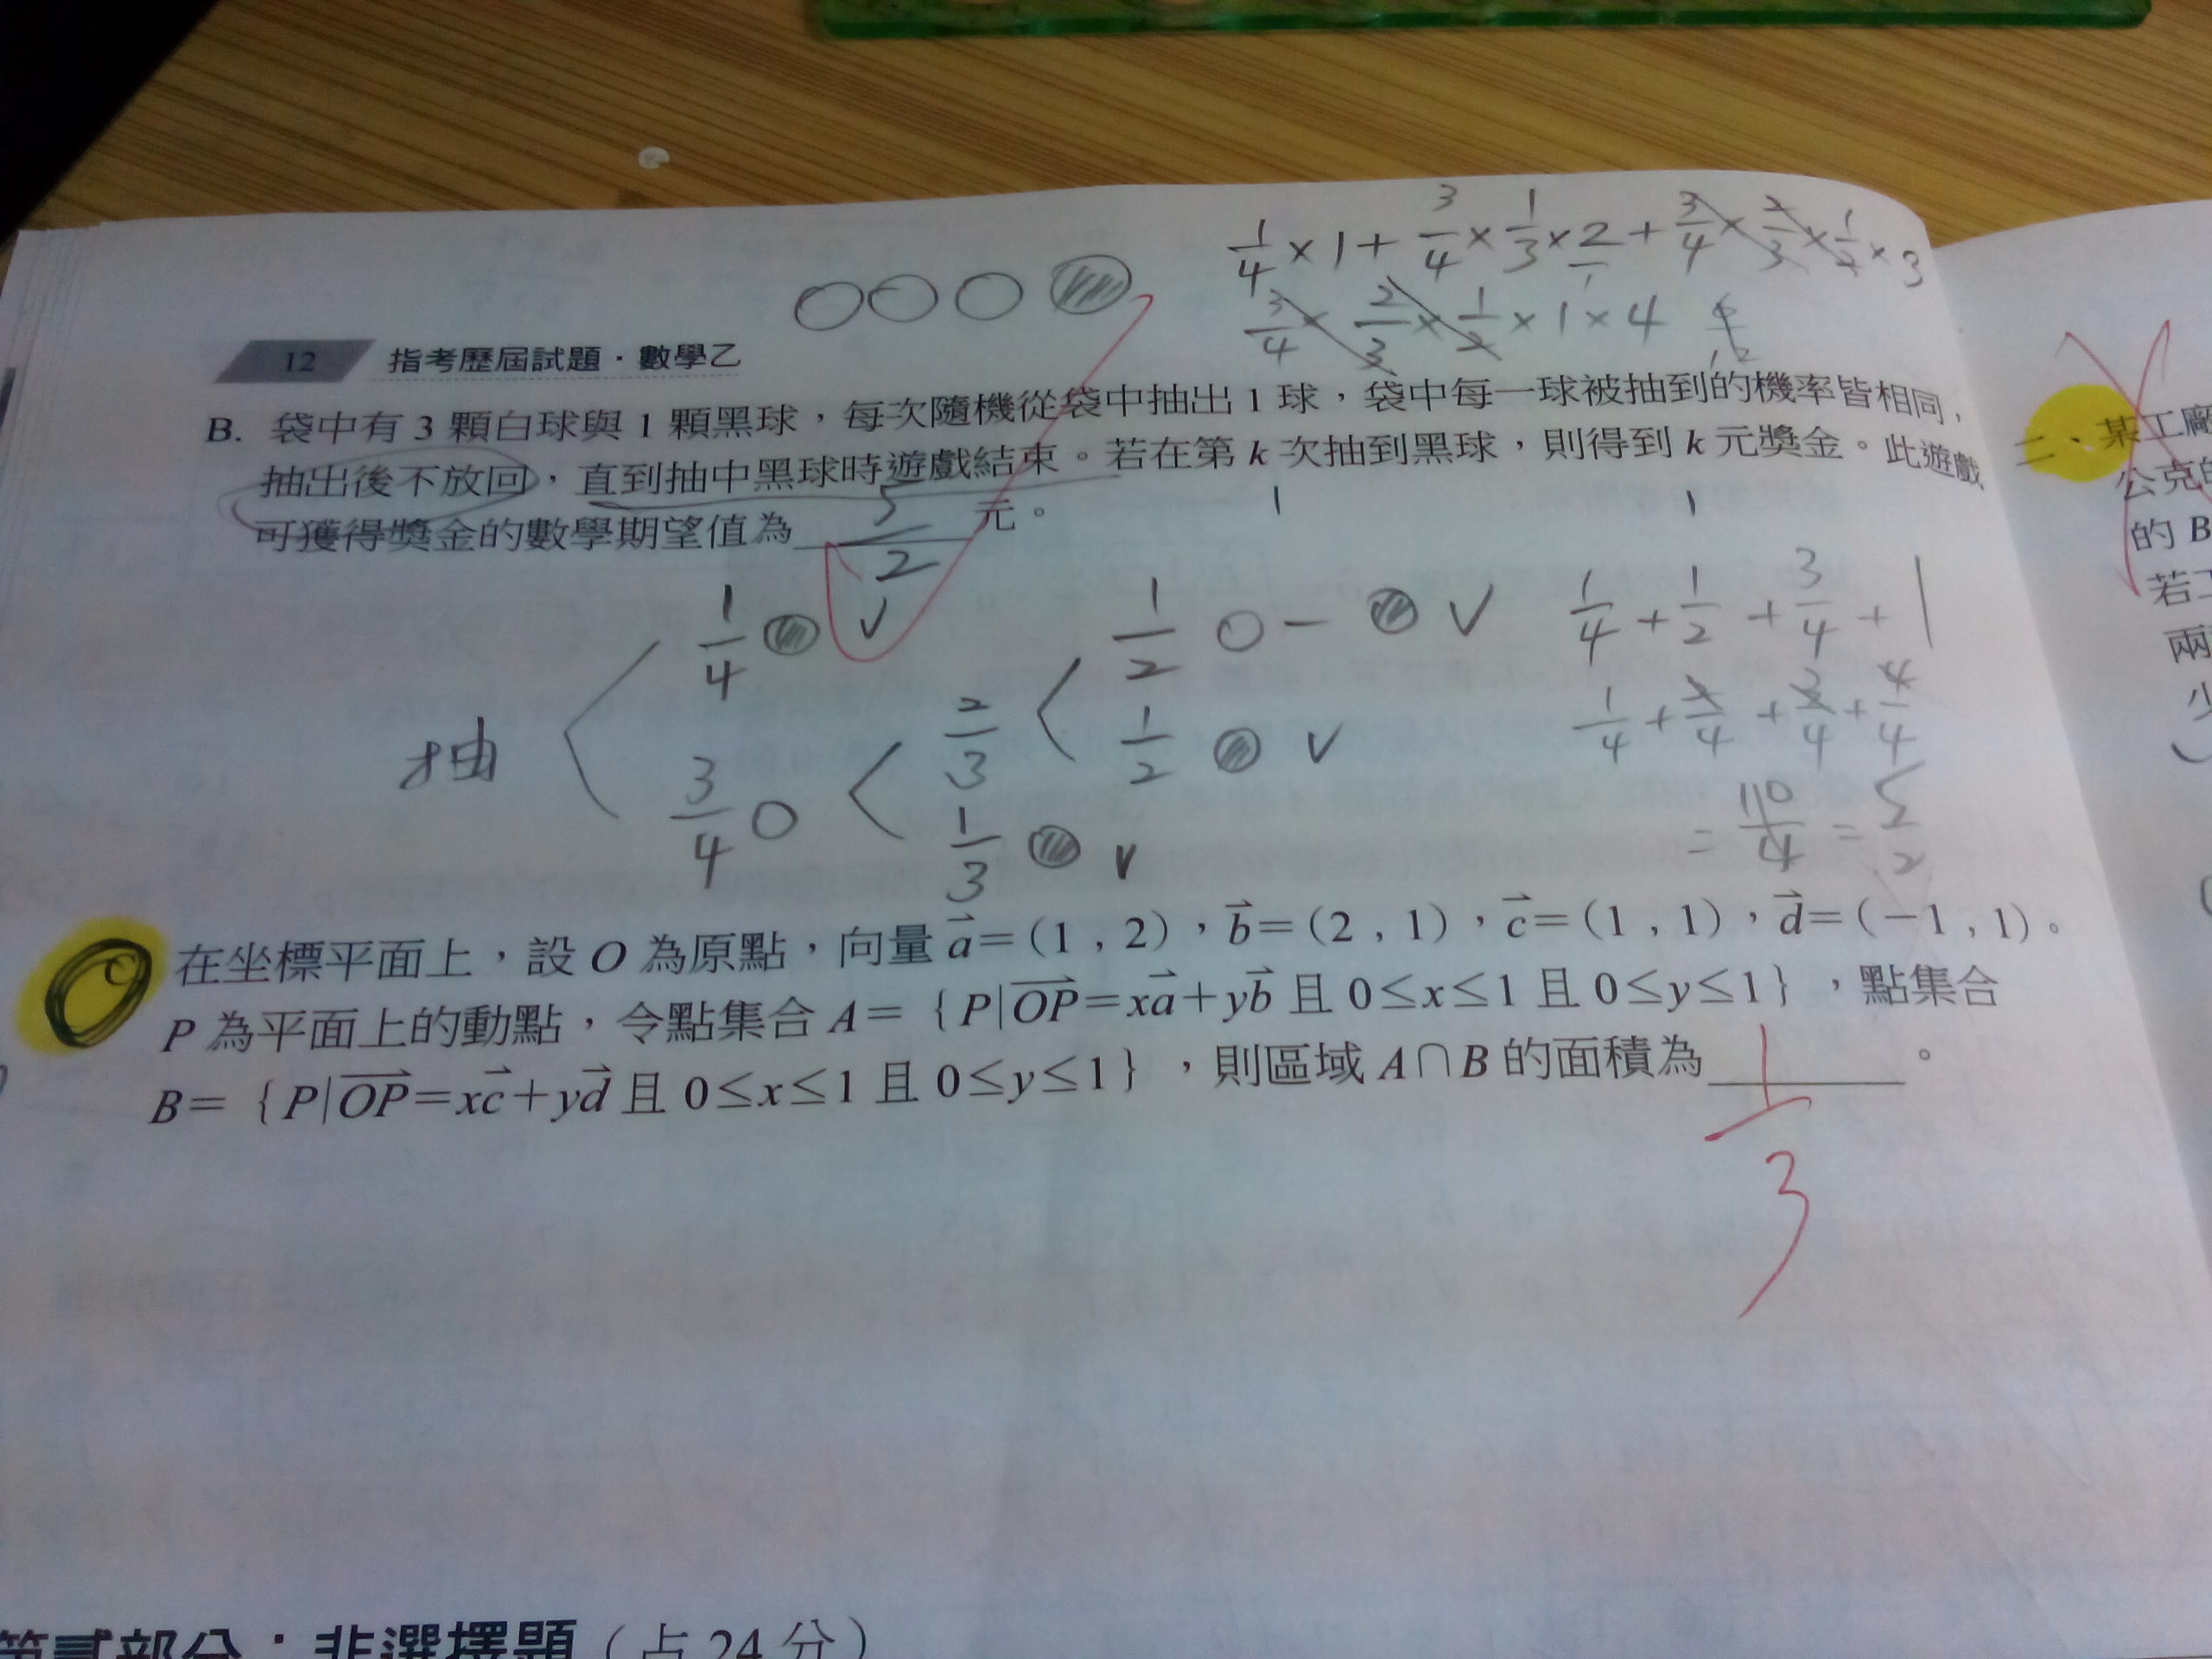 1/4 × 1 + 3/4 × 1/3 × 2/1 + 3/4 × 2/3 × 1/2 × 3
3/4 × 2/3 × 1/2 × 1 × 4
12 指考歷屆試題・數學乙
B. 袋中有 3 顆白球與 1 顆黑球，每次隨機從袋中抽出 1 球，袋中每一球被抽到的機率皆相同，
抽出後不放回，直到抽中黑球時遊戲結束。若在第 k 次抽到黑球，則得到 k 元獎金。此遊戲
可獲得獎金的數學期望值為 5/2 元。
1 1
1/4 ✓ 1/2 ○ − ✓ 1/4 + 1/2 + 3/4 + 1
抽 3/4 ○ 2/3 1/2 ✓ 1/4 + 2/4 + 3/4 + 4/4
1/3 ✓ = 10/4 = 5/2
C 在坐標平面上，設 O 為原點，向量 a⃗=(1 , 2)，b⃗=(2 , 1)，c⃗=(1 , 1)，d⃗=(−1 , 1)。
P 為平面上的動點，令點集合 A= { P|OP⃗=xa⃗+yb⃗ 且 0≤x≤1 且 0≤y≤1 }，點集合
B= { P|OP⃗=xc⃗+yd⃗ 且 0≤x≤1 且 0≤y≤1 }，則區域 A∩B 的面積為 1/3 。
第貳部分：非選擇題（占 24 分）
二、某工廠
公克的
的 B
若工
兩